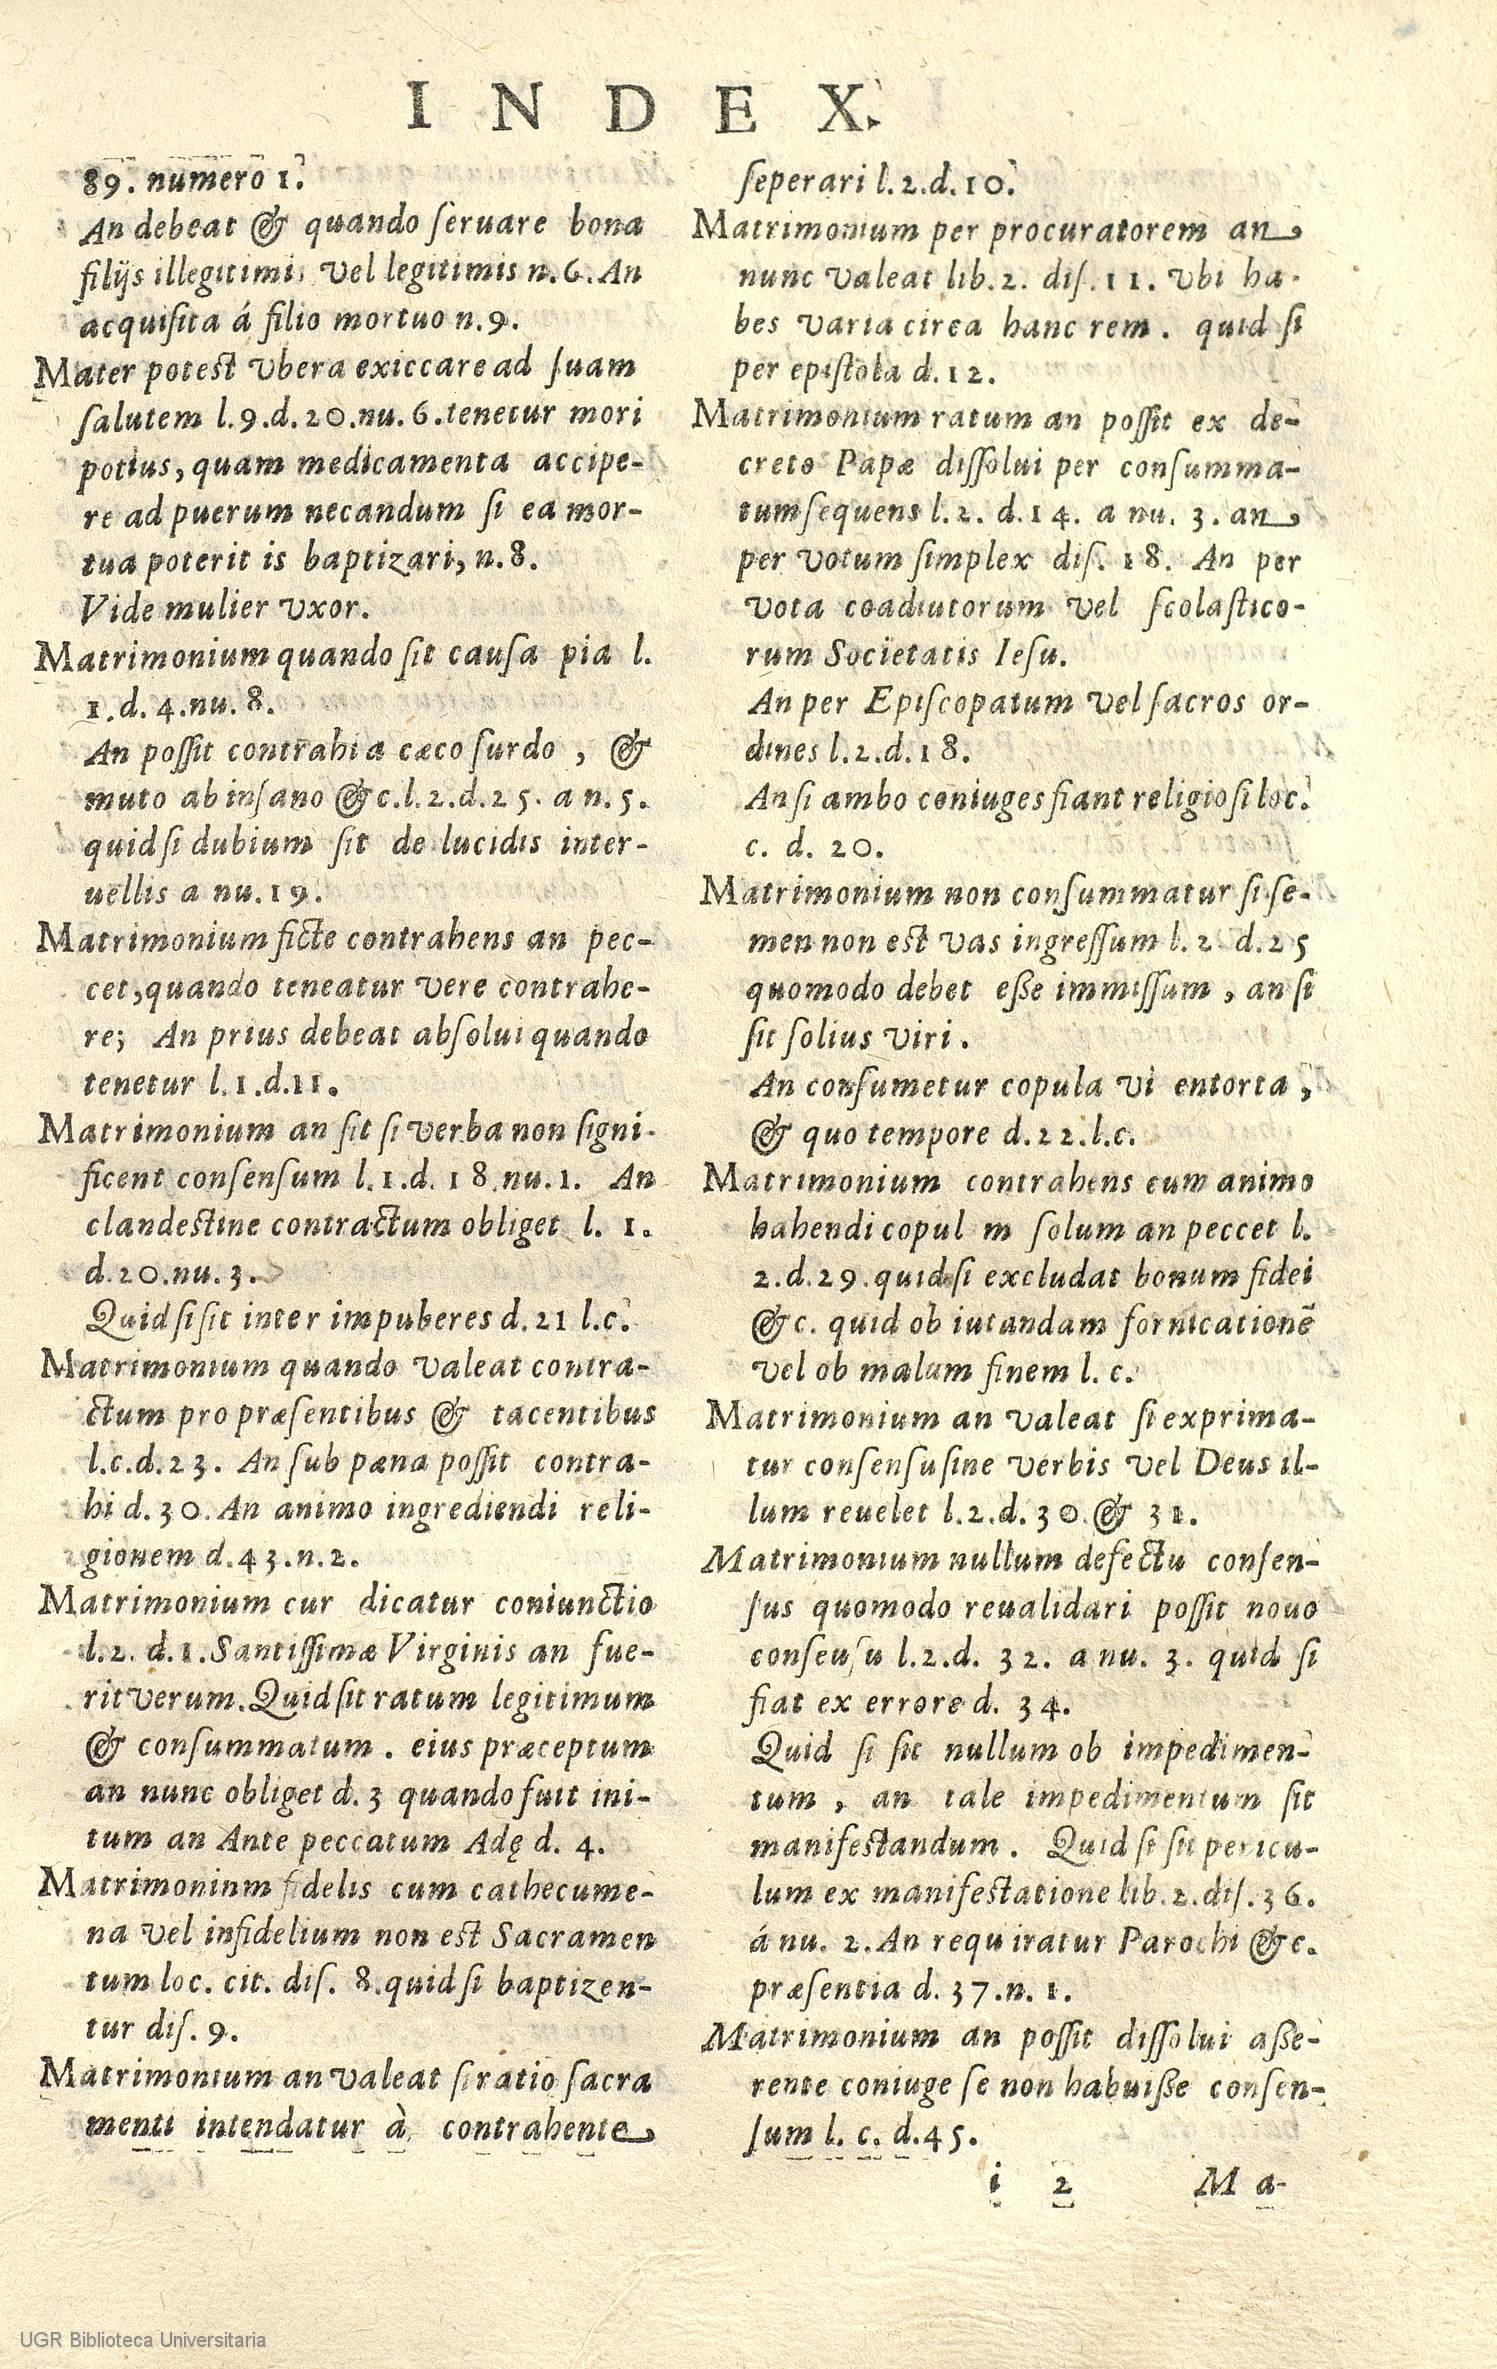 INDEX.
89. numero 1.
An debeat & quando ſeruare bona
filijs illegitimi, vel legitimis n.6. An
acquiſita á filio mortuo n.9.
Mater poteſt vbera exiccare ad ſuam
ſalutem l.9.d.20.nu.6.tenetur mori
potius, quam medicamenta accipe-
re ad puerum necandum ſi ea mor-
tua poterit is baptizari, n.8.
Vide mulier vxor.
Matrimonium quando ſit cauſa pia l.
1.d.4.nu.8.
An poſſit contrahi a cæco ſurdo, &
muto ab inſano &c.l.2.d.25. a n.5.
quid ſi dubium ſit de lucidis inter-
uellis a nu.19.
Matrimonium ficte contrahens an pec-
cet, quando teneatur vere contrahe-
re; An prius debeat abſolui quando
tenetur l.1.d.11.
Matrimonium an ſit ſi verba non ſigni-
ficent conſenſum l.1.d.18.nu.1. An
clandeſtine contractum obliget l. 1.
d.20.nu.3.
Quid ſi ſit inter impuberes d.21 l.c.
Matrimonium quando valeat contra-
ctum pro præſentibus & tacentibus
l.c.d.23. An ſub pæna poſſit contra-
hi d.30. An animo ingrediendi reli-
gionem d.43.n.2.
Matrimonium cur dicatur coniunctio
l.2. d.1. Santiſſimæ Virginis an fue-
rit verum. Quid ſit ratum legitimum
& conſummatum. eius præceptum
an nunc obliget d.3 quando fuit ini-
tum an Ante peccatum Adę d. 4.
Matrimoninm fidelis cum cathecume-
na vel infidelium non eſt Sacramen
tum loc. cit. diſ. 8.quid ſi baptizen-
tur diſ. 9.
Matrimonium an valeat ſi ratio ſacra
menti intendatur à contrahente
ſeperari l.2.d.10.
Matrimonium per procuratorem an
nunc valeat lib.2. diſ.11. vbi ha-
bes varia circa hanc rem. quid ſi
per epiſtola d.12.
Matrimonium ratum an poſſit ex de-
creto Papæ diſſolui per conſumma-
tum ſequens l.2. d.14. a nu. 3. an
per votum ſimplex diſ. 18. An per
vota coadiutorum vel ſcolaſtico-
rum Societatis Ieſu.
An per Epiſcopatum vel ſacros or-
dines l.2.d.18.
An ſi ambo coniuges fiant religioſi loc.
c. d. 20.
Matrimonium non conſummatur ſi ſe-
men non eſt vas ingreſſum l. 2. d.25
quomodo debet eſſe immiſſum, an ſi
ſit ſolius viri.
An conſumetur copula vi entorta,
& quo tempore d.22.l.c.
Matrimonium contrahens cum animo
hahendi copul m ſolum an peccet l.
2.d.29.quid ſi excludat bonum fidei
&c. quid ob iutandam fornicationē
vel ob malum finem l. c.
Matrimonium an valeat ſi exprima-
tur conſenſu ſine verbis vel Deus il-
lum reuelet l.2.d.30.& 31.
Matrimonium nullum defectu conſen-
ſus quomodo reualidari poſſit nouo
conſeuſu l.2.d. 32. a nu. 3. quid ſi
fiat ex errore d. 34.
Quid ſi ſit nullum ob impedimen-
tum, an tale impedimentum ſit
manifeſtandum. Quid ſi ſit pericu-
lum ex manifeſtatione lib.2.diſ.36.
á nu. 2. An requiratur Parochi &c.
præſentia d. 37.n. 1.
Matrimonium an poſſit diſſolui aſſe-
rente coniuge ſe non habuiſſe conſen-
ſum l. c. d.45.
i 2 Ma-
UGR Biblioteca Universitaria